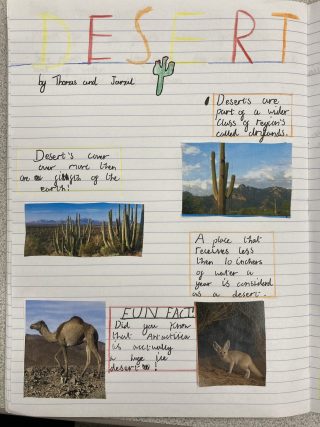 DESERT
by Thomas and
Desert's are
part of a wider
class of region's
called drylands.
Desert's cover
over more then
are a fifth of the
earth!
A place that
receives less
then 10 inchers
of water a
year is considerd
as a desert.
FUN FACT
Did you know
that Antartica
is acctually
a huge ice
desert!